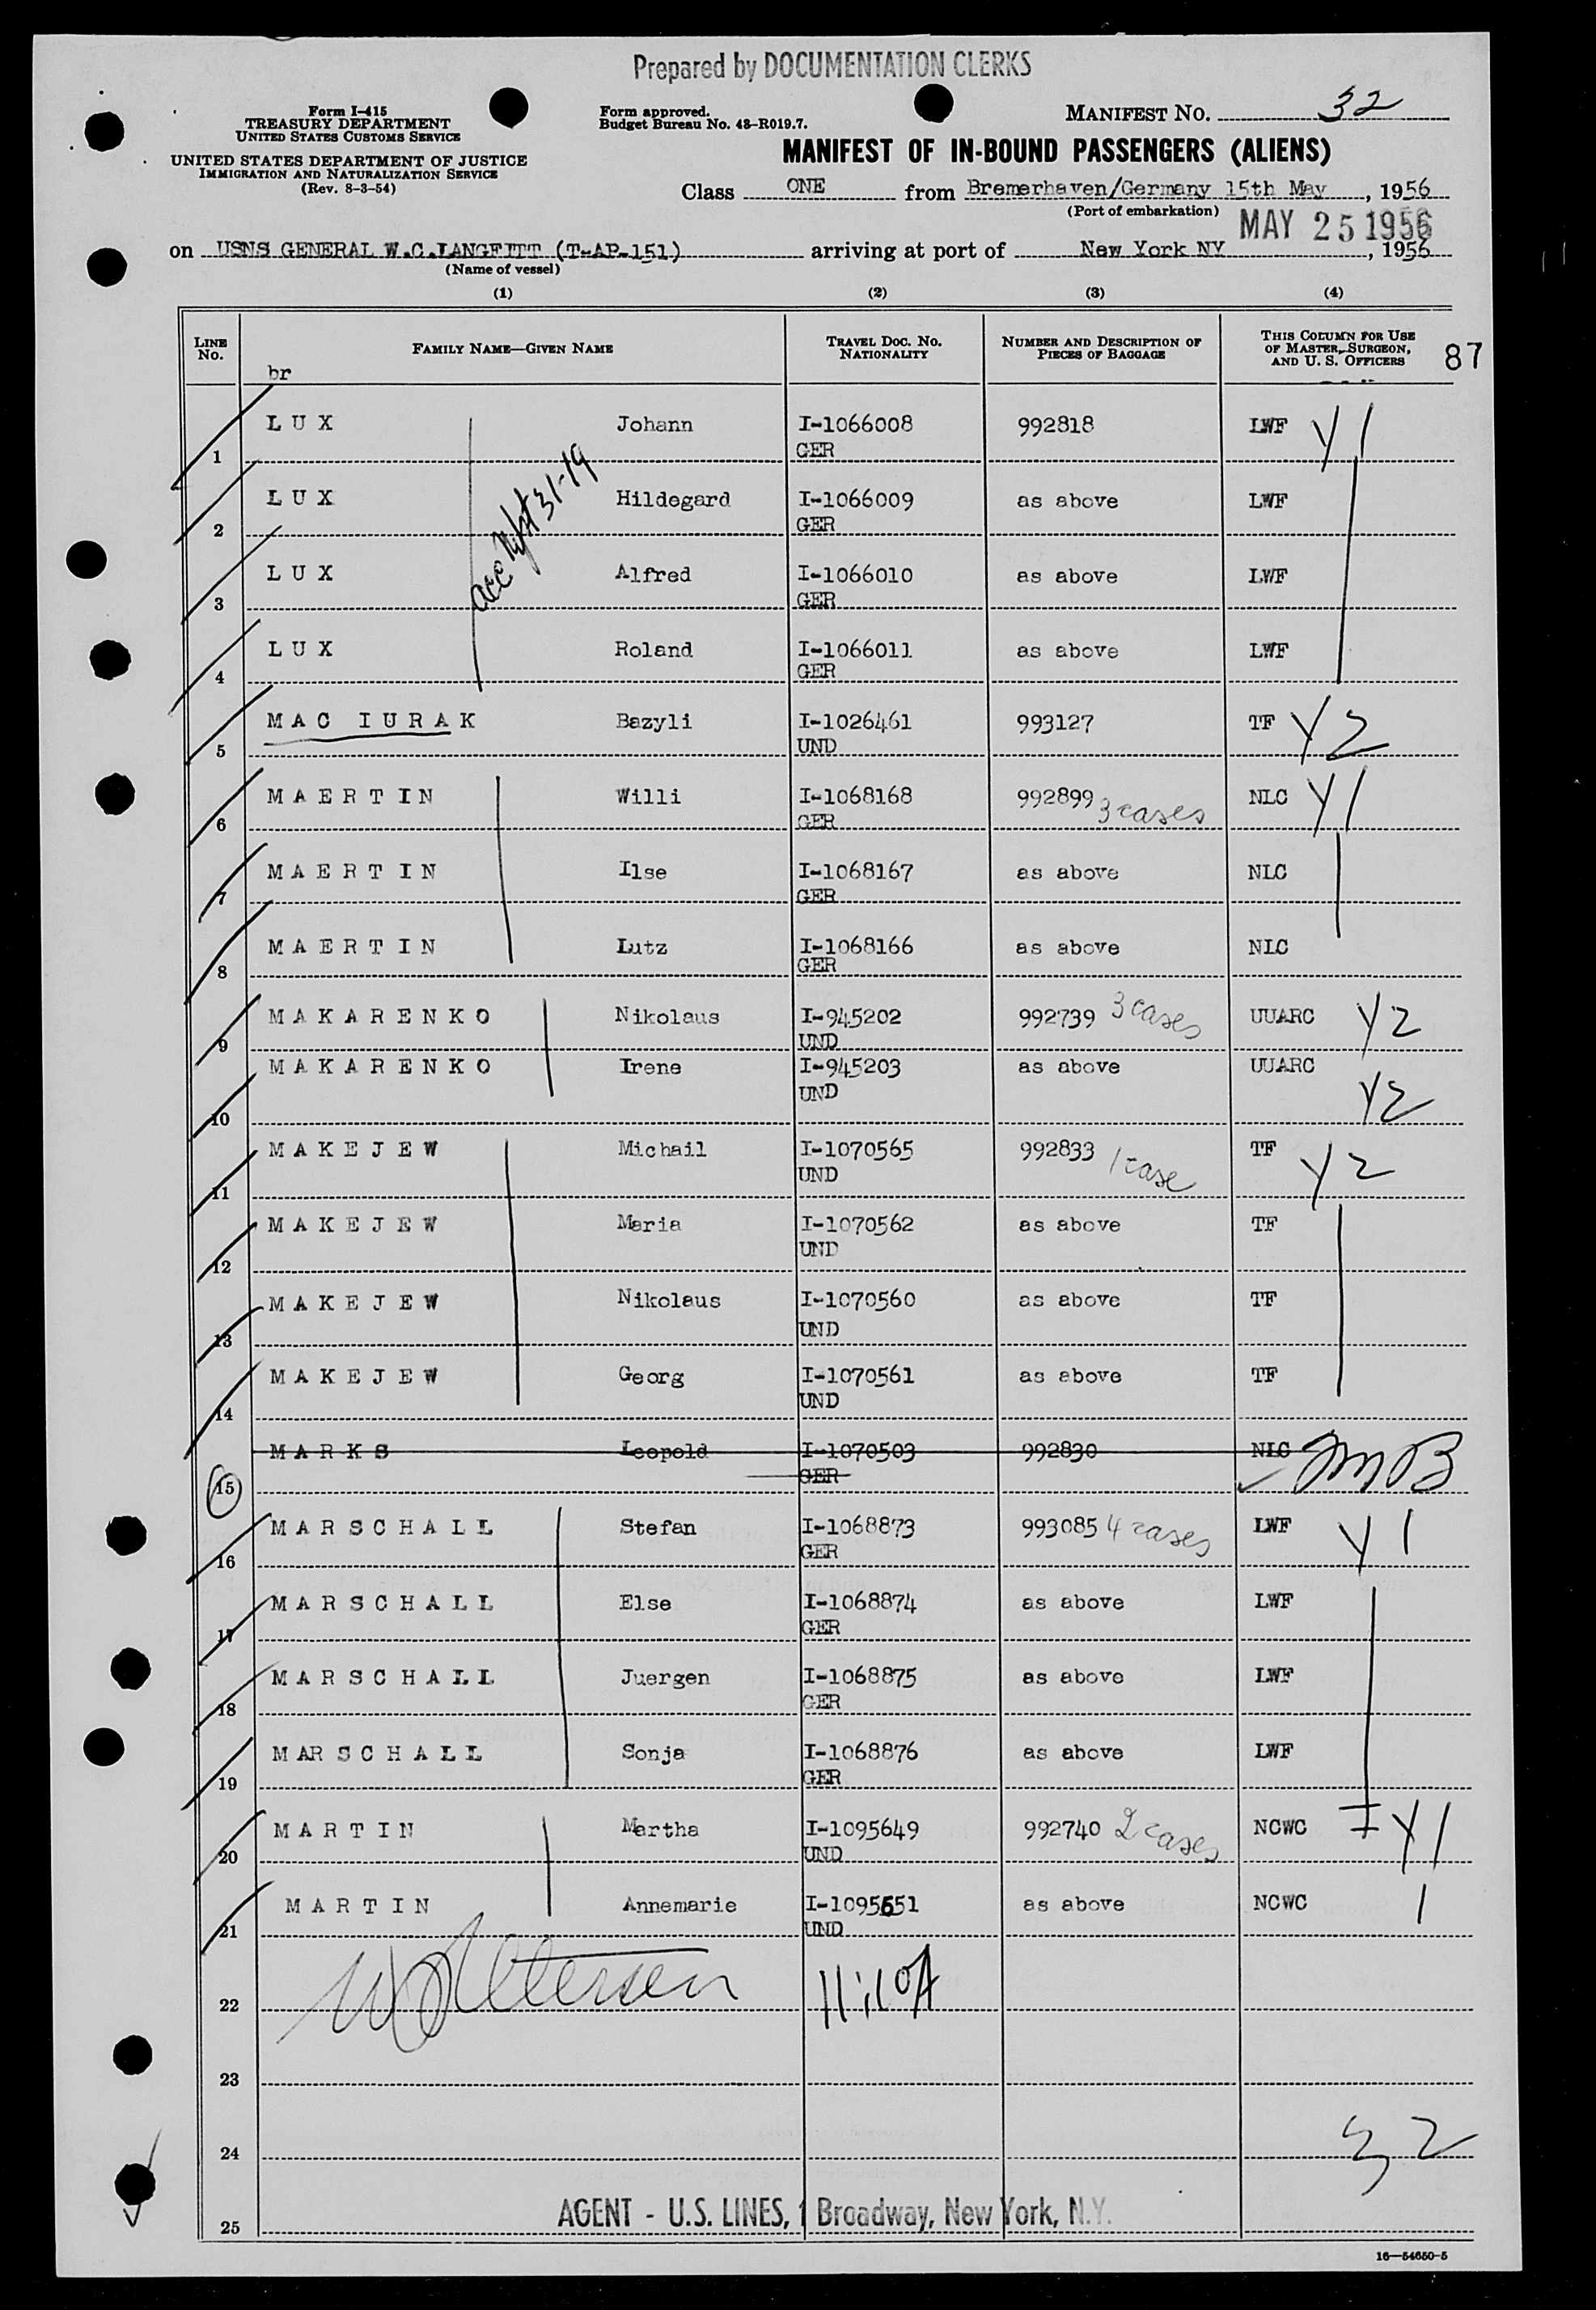 Prepared by DOCUMENTATION CLERKS
Form I-415
TREASURY DEPARTMENT
UNITED STATES CUSTOMS SERVICE
UNITED STATES DEPARTMENT OF JUSTICE
IMMIGRATION AND NATURALIZATION SERVICE
(Rev. 8-3-54)
Form approved.
Budget Bureau No. 43-R019.7.
MANIFEST NO. 32
MANIFEST OF IN-BOUND PASSENGERS (ALIENS)
Class ONE from Bremerhaven/Germany 15th May, 1956
(Port of embarkation)
MAY 25 1956
on USNS GENERAL W.C.LANGFITT (T-AP-151) arriving at port of New York NY, 1956
(Name of vessel)
(1) (2) (3) (4)
LINE NO. FAMILY NAME—GIVEN NAME TRAVEL DOC. NO. NATIONALITY NUMBER AND DESCRIPTION OF PIECES OF BAGGAGE THIS COLUMN FOR USE OF MASTER, SURGEON, AND U. S. OFFICERS 87
br
1 LUX Johann I-1066008 GER 992818 LWF Y1
2 LUX Hildegard I-1066009 GER as above LWF
3 LUX Alfred I-1066010 GER as above LWF
4 LUX Roland I-1066011 GER as above LWF
5 MAC IURAK Bazyli I-1026461 UND 993127 TF Y2
6 MAERTIN Willi I-1068168 GER 992899 3 cases NLC Y1
7 MAERTIN Ilse I-1068167 GER as above NLC
8 MAERTIN Lutz I-1068166 GER as above NLC
9 MAKARENKO Nikolaus I-945202 UND 992739 3 cases UUARC Y2
10 MAKARENKO Irene I-945203 UND as above UUARC Y2
11 MAKEJEW Michail I-1070565 UND 992833 1 case TF Y2
12 MAKEJEW Maria I-1070562 UND as above TF
13 MAKEJEW Nikolaus I-1070560 UND as above TF
14 MAKEJEW Georg I-1070561 UND as above TF
15 MARKS Leopold I-1070503 GER 992830 NLC
16 MARSCHALL Stefan I-1068873 GER 993085 4 cases LWF Y1
17 MARSCHALL Else I-1068874 GER as above LWF
18 MARSCHALL Juergen I-1068875 GER as above LWF
19 MARSCHALL Sonja I-1068876 GER as above LWF
20 MARTIN Martha I-1095649 UND 992740 2 cases NCWC Y1
21 MARTIN Annemarie I-1095651 UND as above NCWC 1
22
23
24 32
25 AGENT - U.S. LINES, 1 Broadway, New York, N.Y.
16—54650-5